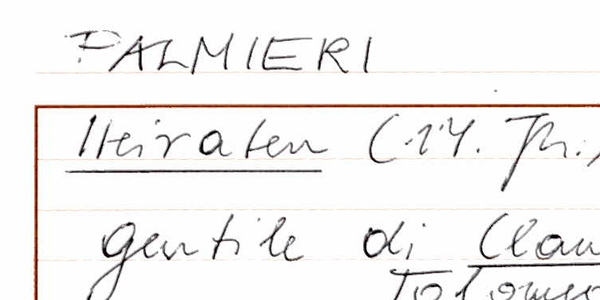 PALMIERI
Heiraten (14. Jh.)
gentile di Clau
Tolomeo